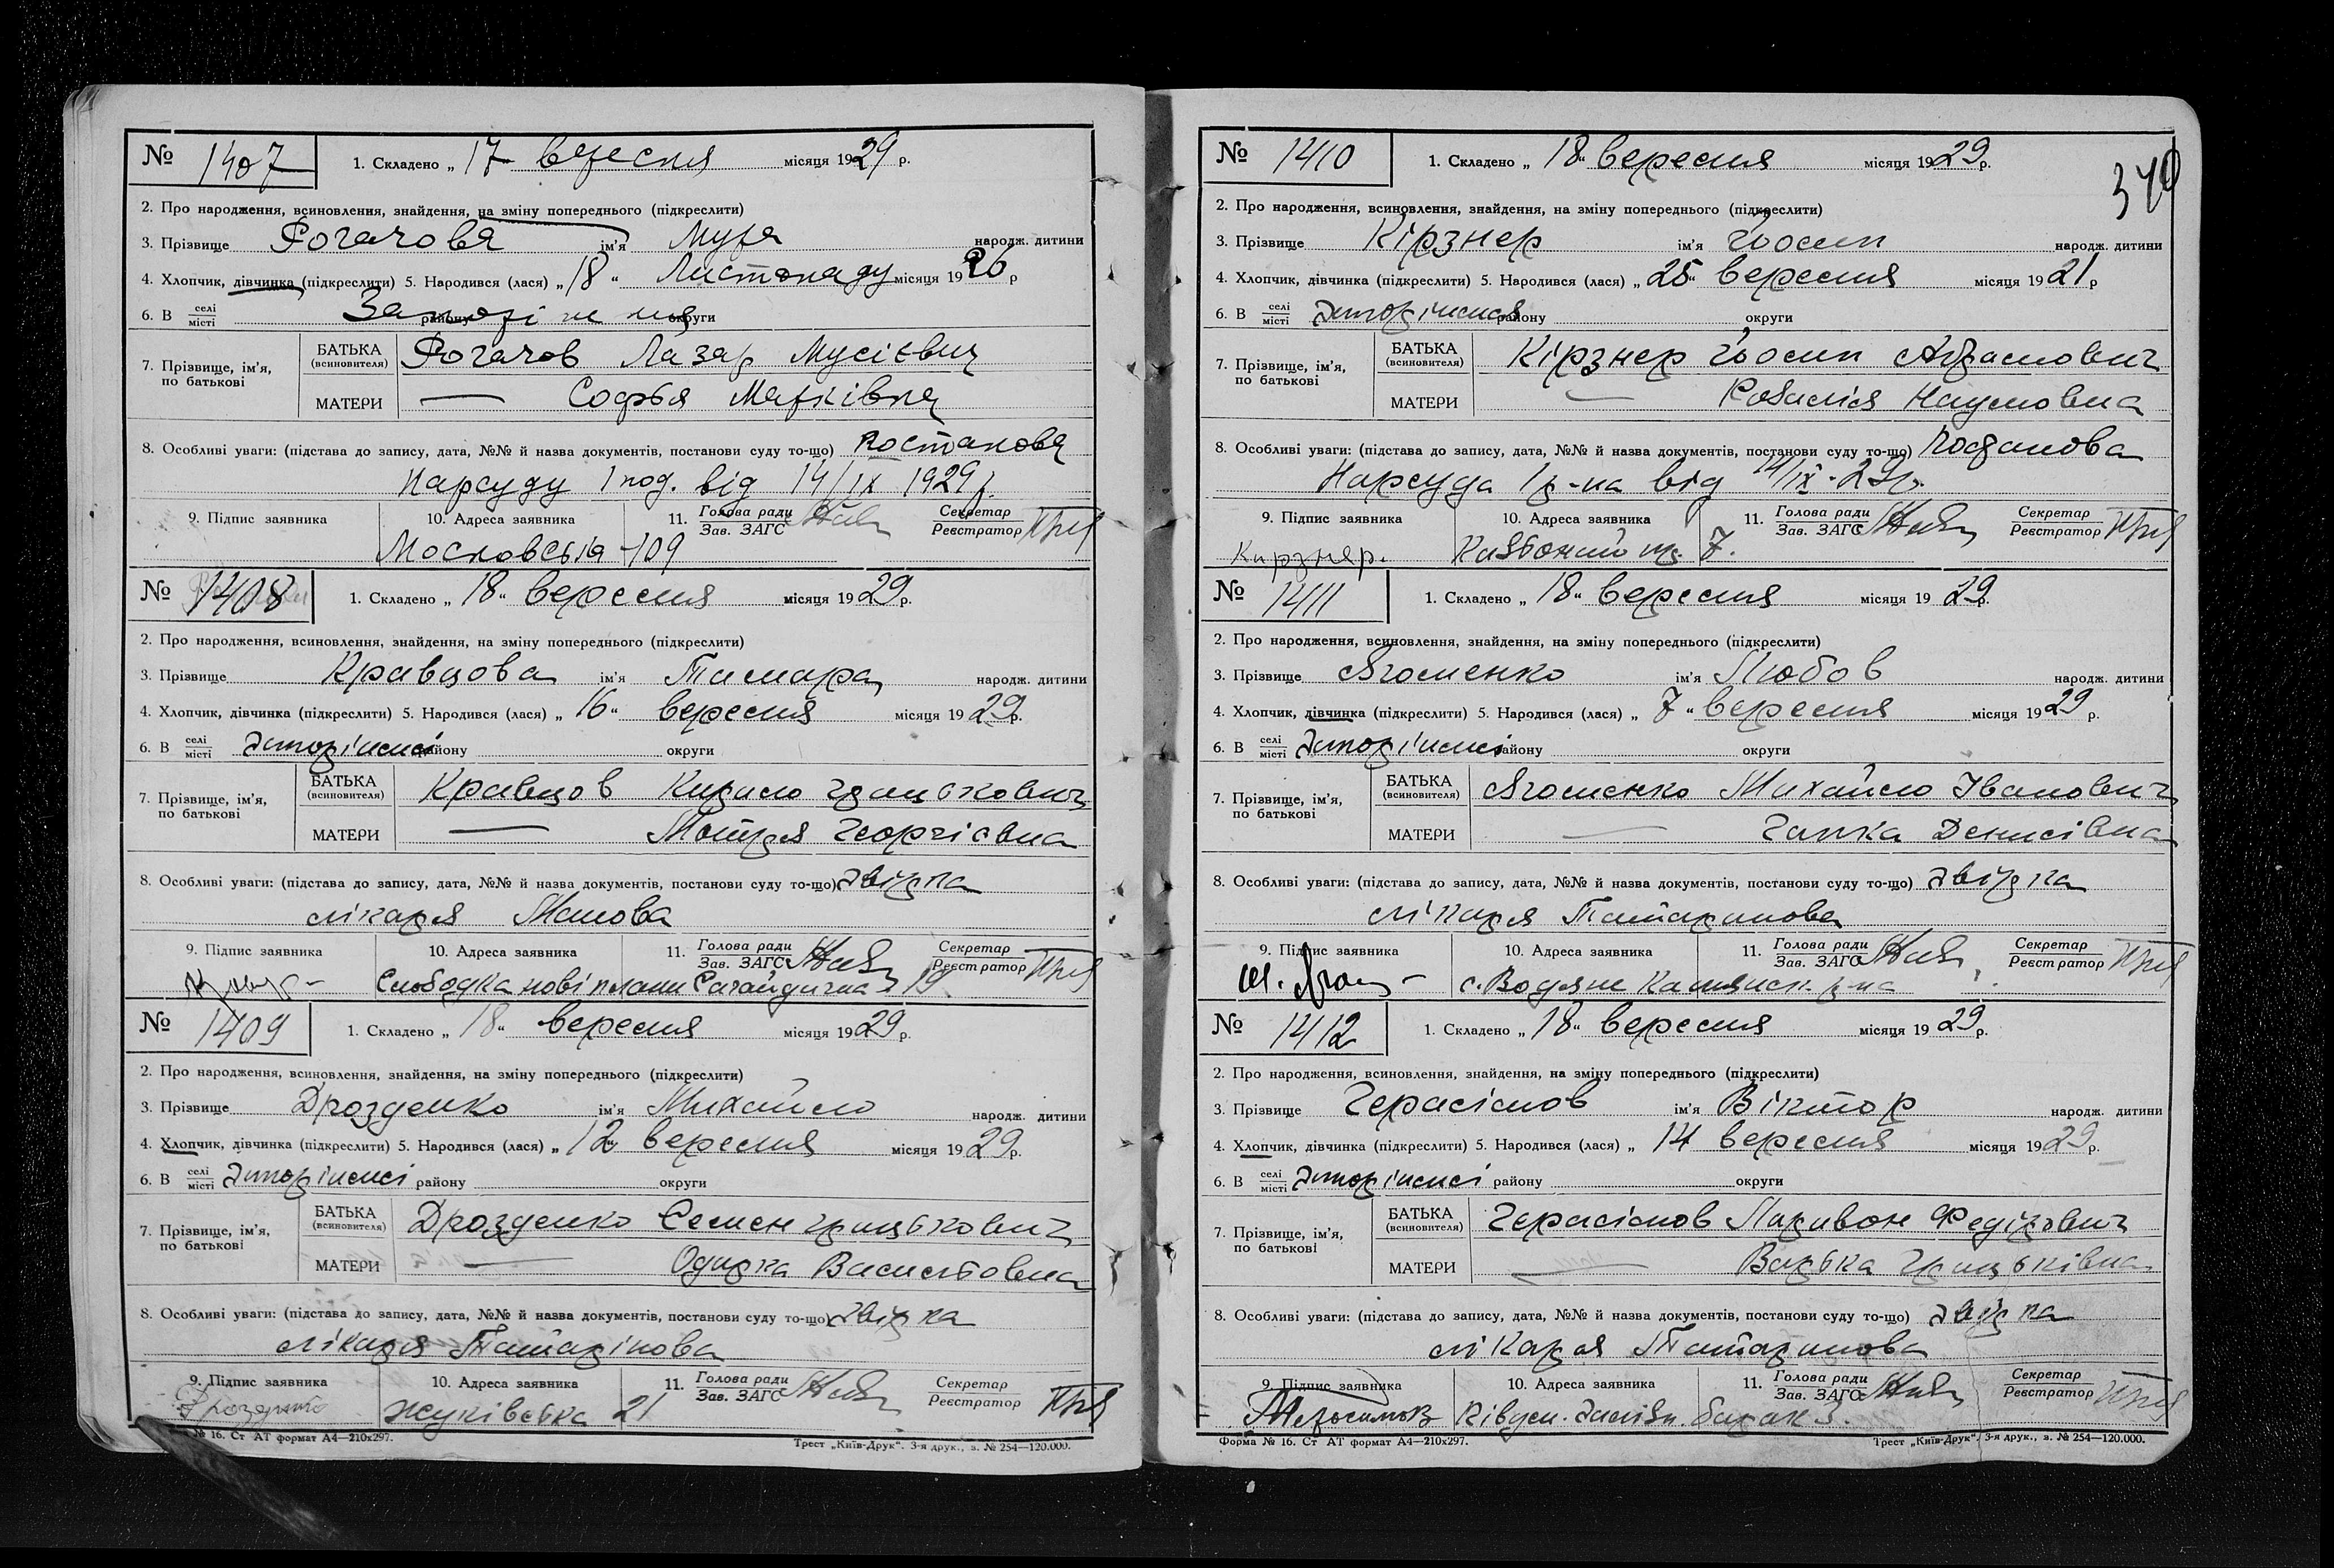 № 1407 1. Складено „ 17 вересня місяця 1929 р.
2. Про народження, всиновлення, знайдення, на зміну попереднього (підкреслити)
3. Прізвище Рогачова ім'я Мура народж. дитини
4. Хлопчик, дівчинка (підкреслити) 5. Народився (лася) „ 18 “ Листопаду місяця 1926 р
6. В селі місті району округи
7. Прізвище, ім'я, по батькові
БАТЬКА (всиновителя) Рогачов Лазар Мусієвич
МАТЕРИ — Софья Марківна
8. Особливі уваги: (підстава до запису, дата, №№ й назва документів, постанови суду то-що) постанова
Нарсуду 1 від 14/IX 1929 р.
9. Підпис заявника 10. Адреса заявника 11. Голова ради Зав. ЗАГС Секретар Реєстратор
Московська 109
№ 1408 1. Складено „ 18 “ вересня місяця 1929 р.
2. Про народження, всиновлення, знайдення, на зміну попереднього (підкреслити)
3. Прізвище Кравцова ім'я Тамара народж. дитини
4. Хлопчик, дівчинка (підкреслити) 5. Народився (лася) „ 16 “ вересня місяця 1929 р.
6. В селі місті Запоріжжі району округи
7. Прізвище, ім'я, по батькові
БАТЬКА (всиновителя) Кравцов Кирило Грицькович
МАТЕРИ — Мотря Георгієвна
8. Особливі уваги: (підстава до запису, дата, №№ й назва документів, постанови суду то-що) Звірка
лікаря
9. Підпис заявника 10. Адреса заявника 11. Голова ради Зав. ЗАГС Секретар Реєстратор
Слободка нові плани 19
№ 1409 1. Складено „ 18 “ вересня місяця 1929 р.
2. Про народження, всиновлення, знайдення, на зміну попереднього (підкреслити)
3. Прізвище Дрозденко ім'я Михайло народж. дитини
4. Хлопчик, дівчинка (підкреслити) 5. Народився (лася) „ 12 вересня місяця 1929 р.
6. В селі місті Запоріжжі району округи
7. Прізвище, ім'я, по батькові
БАТЬКА (всиновителя) Дрозденко Семен Грицькович
МАТЕРИ — Одарка Василовна
8. Особливі уваги: (підстава до запису, дата, №№ й назва документів, постанови суду то-що) Звірка
лікаря Татарінова
9. Підпис заявника 10. Адреса заявника 11. Голова ради Зав. ЗАГС Секретар Реєстратор
Жуківська 21
№ 16. Ст АТ формат А4—210х297. Трест „Київ-Друк“. 3-я друк., з. № 254—120.000.
340
№ 1410 1. Складено „ 18 “ вересня місяця 1929 р.
2. Про народження, всиновлення, знайдення, на зміну попереднього (підкреслити)
3. Прізвище Кірзнер ім'я Йосип народж. дитини
4. Хлопчик, дівчинка (підкреслити) 5. Народився (лася) „ 25 “ вересня місяця 1921 р
6. В селі місті Запоріжжя району округи
7. Прізвище, ім'я, по батькові
БАТЬКА (всиновителя) Кірзнер Йосип Абрамович
МАТЕРИ — Розалія Наумовна
8. Особливі уваги: (підстава до запису, дата, №№ й назва документів, постанови суду то-що)
Нарсуда 1 р-на від 14/IX-29р.
9. Підпис заявника 10. Адреса заявника 11. Голова ради Зав. ЗАГС Секретар Реєстратор
Кирзнер. 7.
№ 1411 1. Складено „ 18 “ вересня місяця 1929 р.
2. Про народження, всиновлення, знайдення, на зміну попереднього (підкреслити)
3. Прізвище Ягоменко ім'я Любов народж. дитини
4. Хлопчик, дівчинка (підкреслити) 5. Народився (лася) „ 7 “ вересня місяця 1929 р.
6. В селі місті Запоріжжі району округи
7. Прізвище, ім'я, по батькові
БАТЬКА (всиновителя) Ягоменко Михайло Іванович
МАТЕРИ — Ганка Денисівна
8. Особливі уваги: (підстава до запису, дата, №№ й назва документів, постанови суду то-що) Звірка
лікаря Татаринова
9. Підпис заявника 10. Адреса заявника 11. Голова ради Зав. ЗАГС Секретар Реєстратор
с. Водяне Камянськ. р-на
№ 1412 1. Складено „ 18 “ вересня місяця 1929 р.
2. Про народження, всиновлення, знайдення, на зміну попереднього (підкреслити)
3. Прізвище Герасімов ім'я Віктор народж. дитини
4. Хлопчик, дівчинка (підкреслити) 5. Народився (лася) „ 14 вересня місяця 1929 р.
6. В селі місті Запоріжжі району округи
7. Прізвище, ім'я, по батькові
БАТЬКА (всиновителя) Герасімов Ларивон Федірович
МАТЕРИ — Варька Грицьківна
8. Особливі уваги: (підстава до запису, дата, №№ й назва документів, постанови суду то-що) Звірка
лікаря Татаринова
9. Підпис заявника 10. Адреса заявника 11. Голова ради Зав. ЗАГС Секретар Реєстратор
барак 3.
Форма № 16. Ст АТ формат А4—210х297. Трест „Київ-Друк“. 3-я друк., з. № 254—120.000.